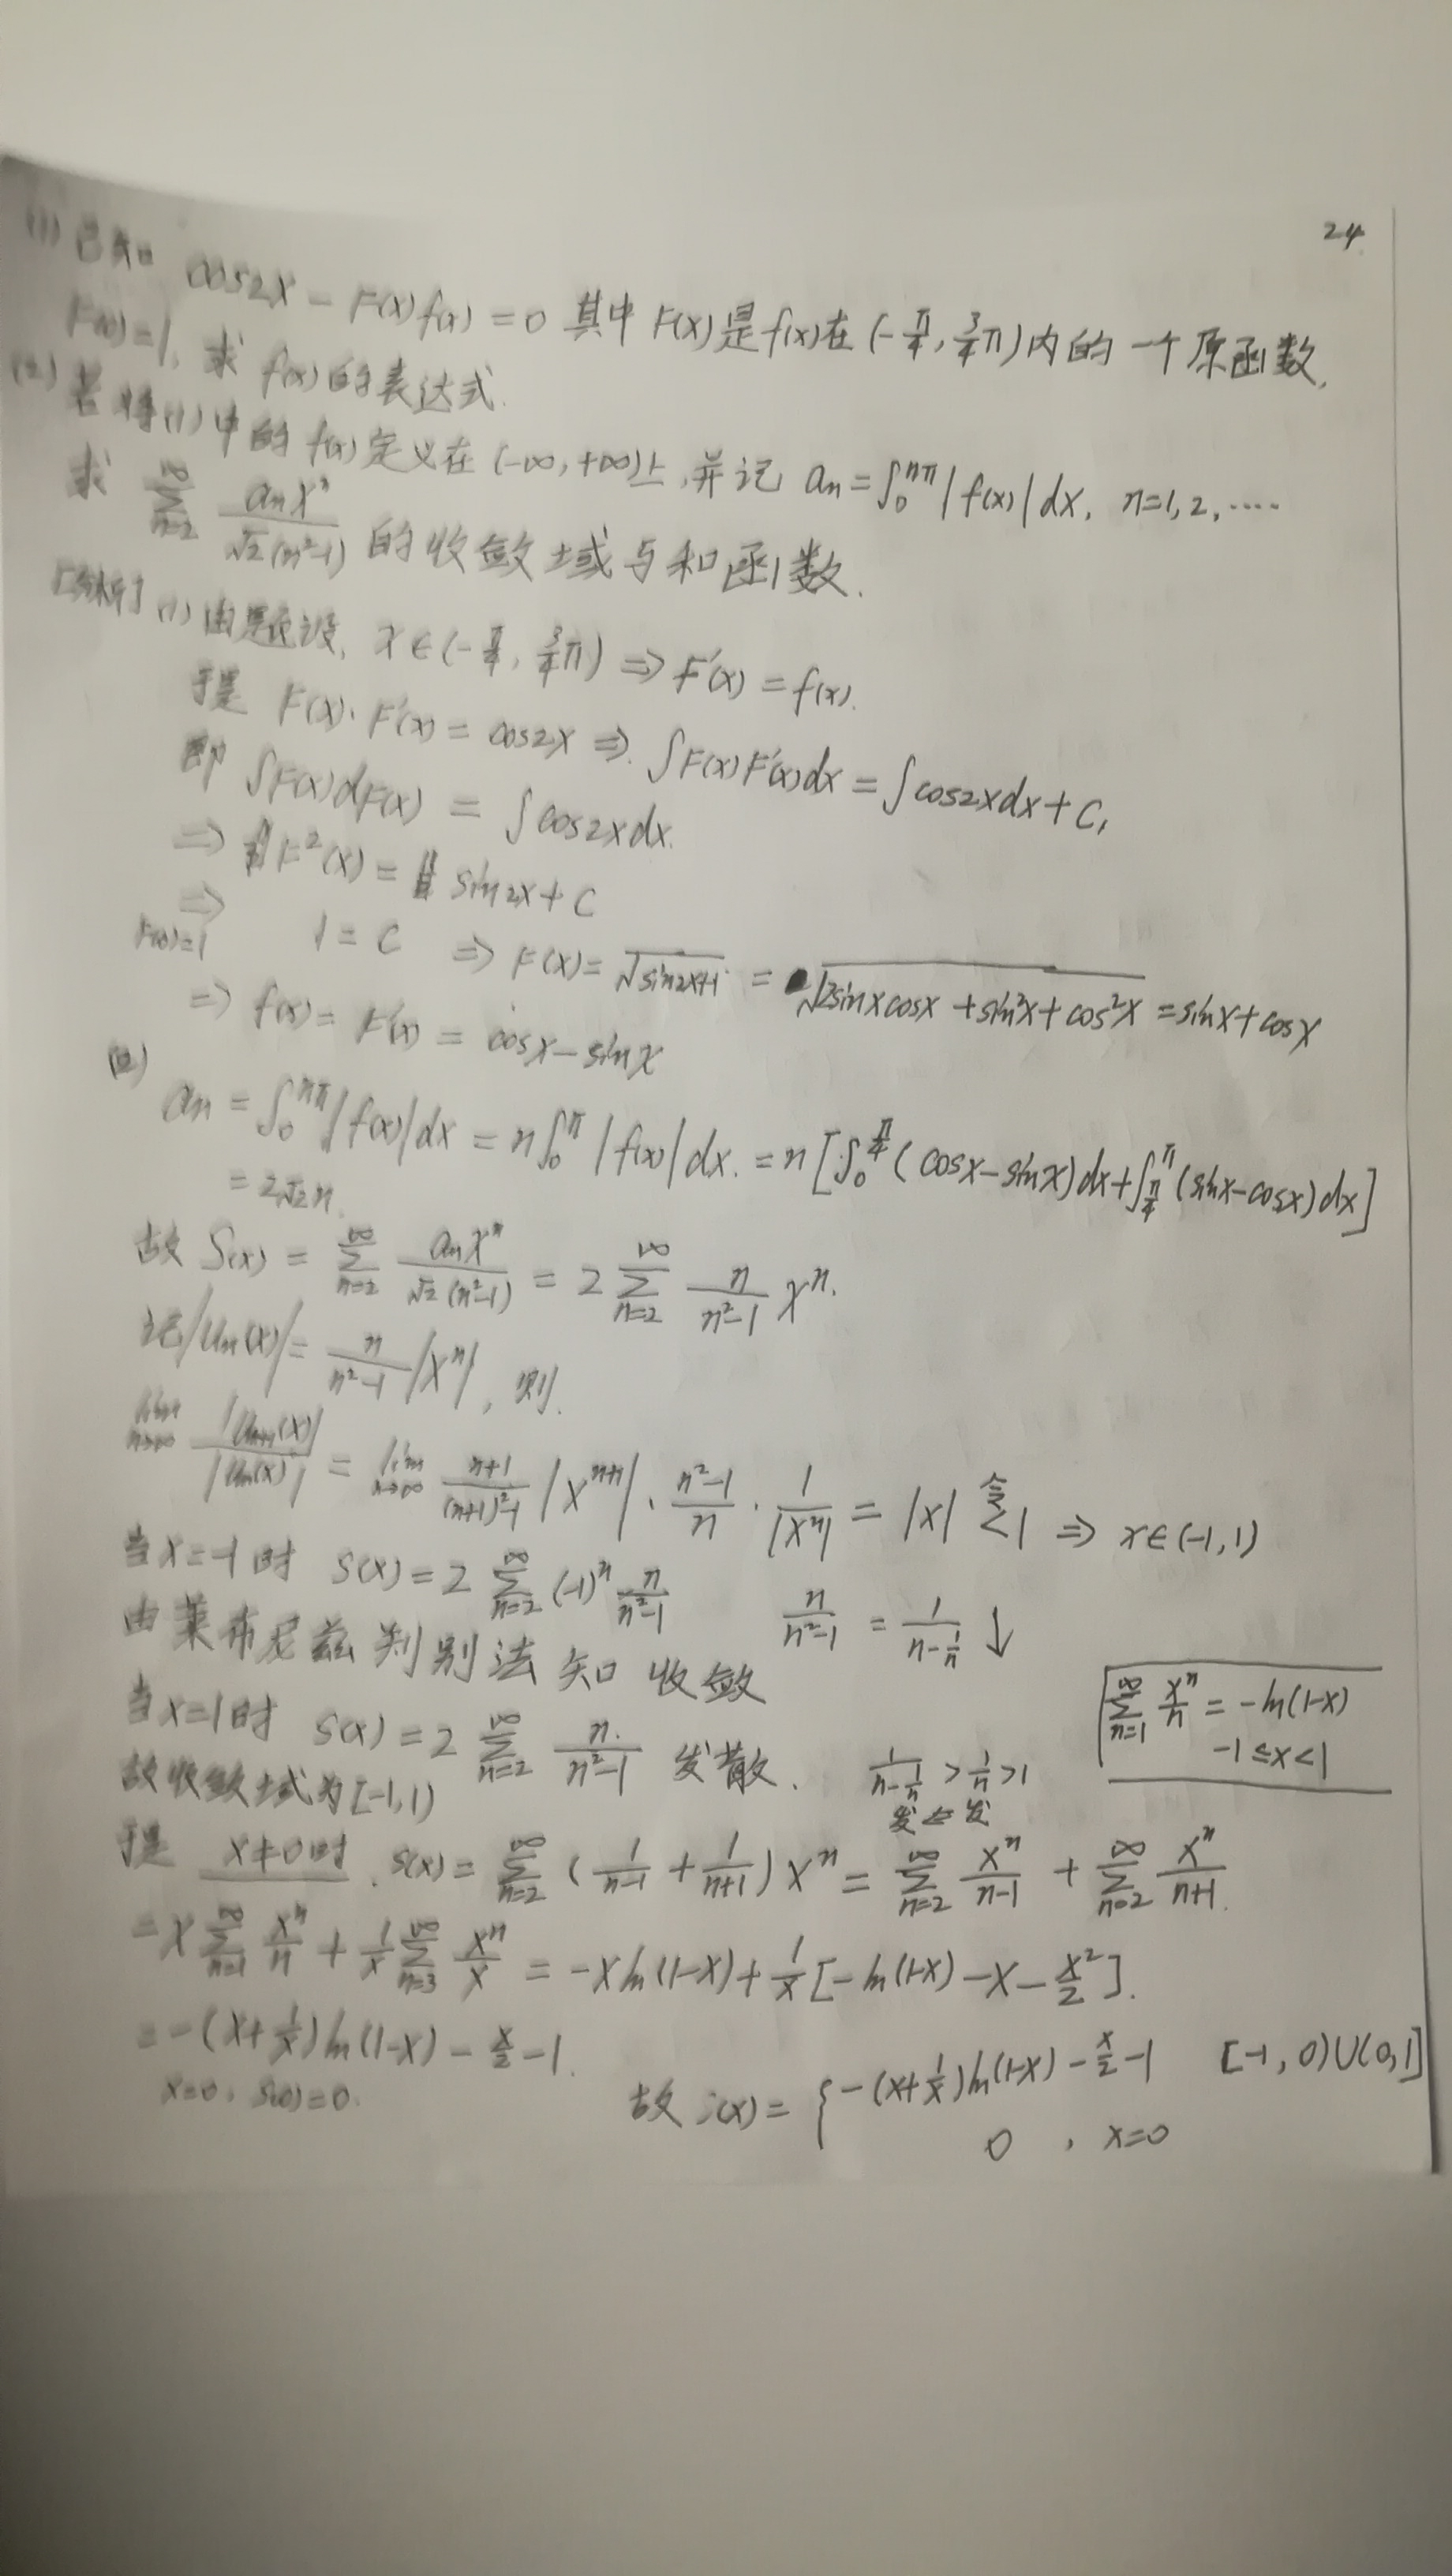 24
(1) 已知 cos2x - F(x)f(x) = 0 其中 F(x)是f(x)在(-π/4, 3/4π)内的一个原函数,
F(0)=1, 求 f(x)的表达式.
(2) 若将(1)中的 f(x)定义在(-∞,+∞)上,并记 an = ∫₀^{nπ} |f(x)|dx, n=1,2,....
求 ∑_{n=2}^{∞} anxⁿ/(√2(n²-1)) 的收敛域与和函数.
[解析] (1) 由题设, x∈(-π/4, 3/4π) ⇒ F'(x) = f(x).
于是 F(x)·F'(x) = cos2x ⇒ ∫F(x)F'(x)dx = ∫cos2xdx + C,
即 ∫F(x)dF(x) = ∫cos2xdx.
⇒ F²(x) = sin2x + C
⇒ F(0)=1 1 = C ⇒ F(x) = √(sin2x+1) = √(2sinxcosx + sin²x + cos²x) = sinx + cosx
⇒ f(x) = F'(x) = cosx - sinx
(2) an = ∫₀^{nπ} |f(x)|dx = n∫₀^π |f(x)|dx. = n[∫₀^{π/4} (cosx-sinx)dx + ∫_{π/4}^π (sinx-cosx)dx]
= 2√2n.
故 S(x) = ∑_{n=2}^{∞} anxⁿ/(√2(n²-1)) = 2∑_{n=2}^{∞} n/(n²-1) xⁿ.
记|Un(x)| = n/(n²-1) |xⁿ|, 则.
lim_{n→∞} |Un+1(x)|/|Un(x)| = lim_{n→∞} (n+1)/((n+1)²-1) |x^{n+1}| · (n²-1)/n · 1/|xⁿ| = |x| 令< 1 ⇒ x∈(-1,1)
当x=-1时 S(x) = 2∑_{n=2}^{∞} (-1)ⁿ n/(n²-1) n/(n²-1) = 1/(n-1/n) ↓
由莱布尼兹判别法知收敛
当x=1时 S(x) = 2∑_{n=2}^{∞} n/(n²-1) 发散. 1/(n-1/n) > 1/n > 1
发 ⇐ 发
∑_{n=1}^{∞} xⁿ/n = -ln(1-x)
-1≤x<1
故收敛域为[-1,1)
于是 x≠0时. S(x) = ∑_{n=2}^{∞} (1/(n-1) + 1/(n+1)) xⁿ = ∑_{n=2}^{∞} xⁿ/(n-1) + ∑_{n=2}^{∞} xⁿ/(n+1).
= x∑_{n=1}^{∞} xⁿ/n + 1/x ∑_{n=3}^{∞} xⁿ/x = -xln(1-x) + 1/x[-ln(1-x) - x - x²/2].
= -(x+1/x)ln(1-x) - x/2 - 1.
x=0, S(0)=0.
故 S(x) = { -(x+1/x)ln(1-x) - x/2 - 1 [-1,0)∪(0,1]
0 , x=0